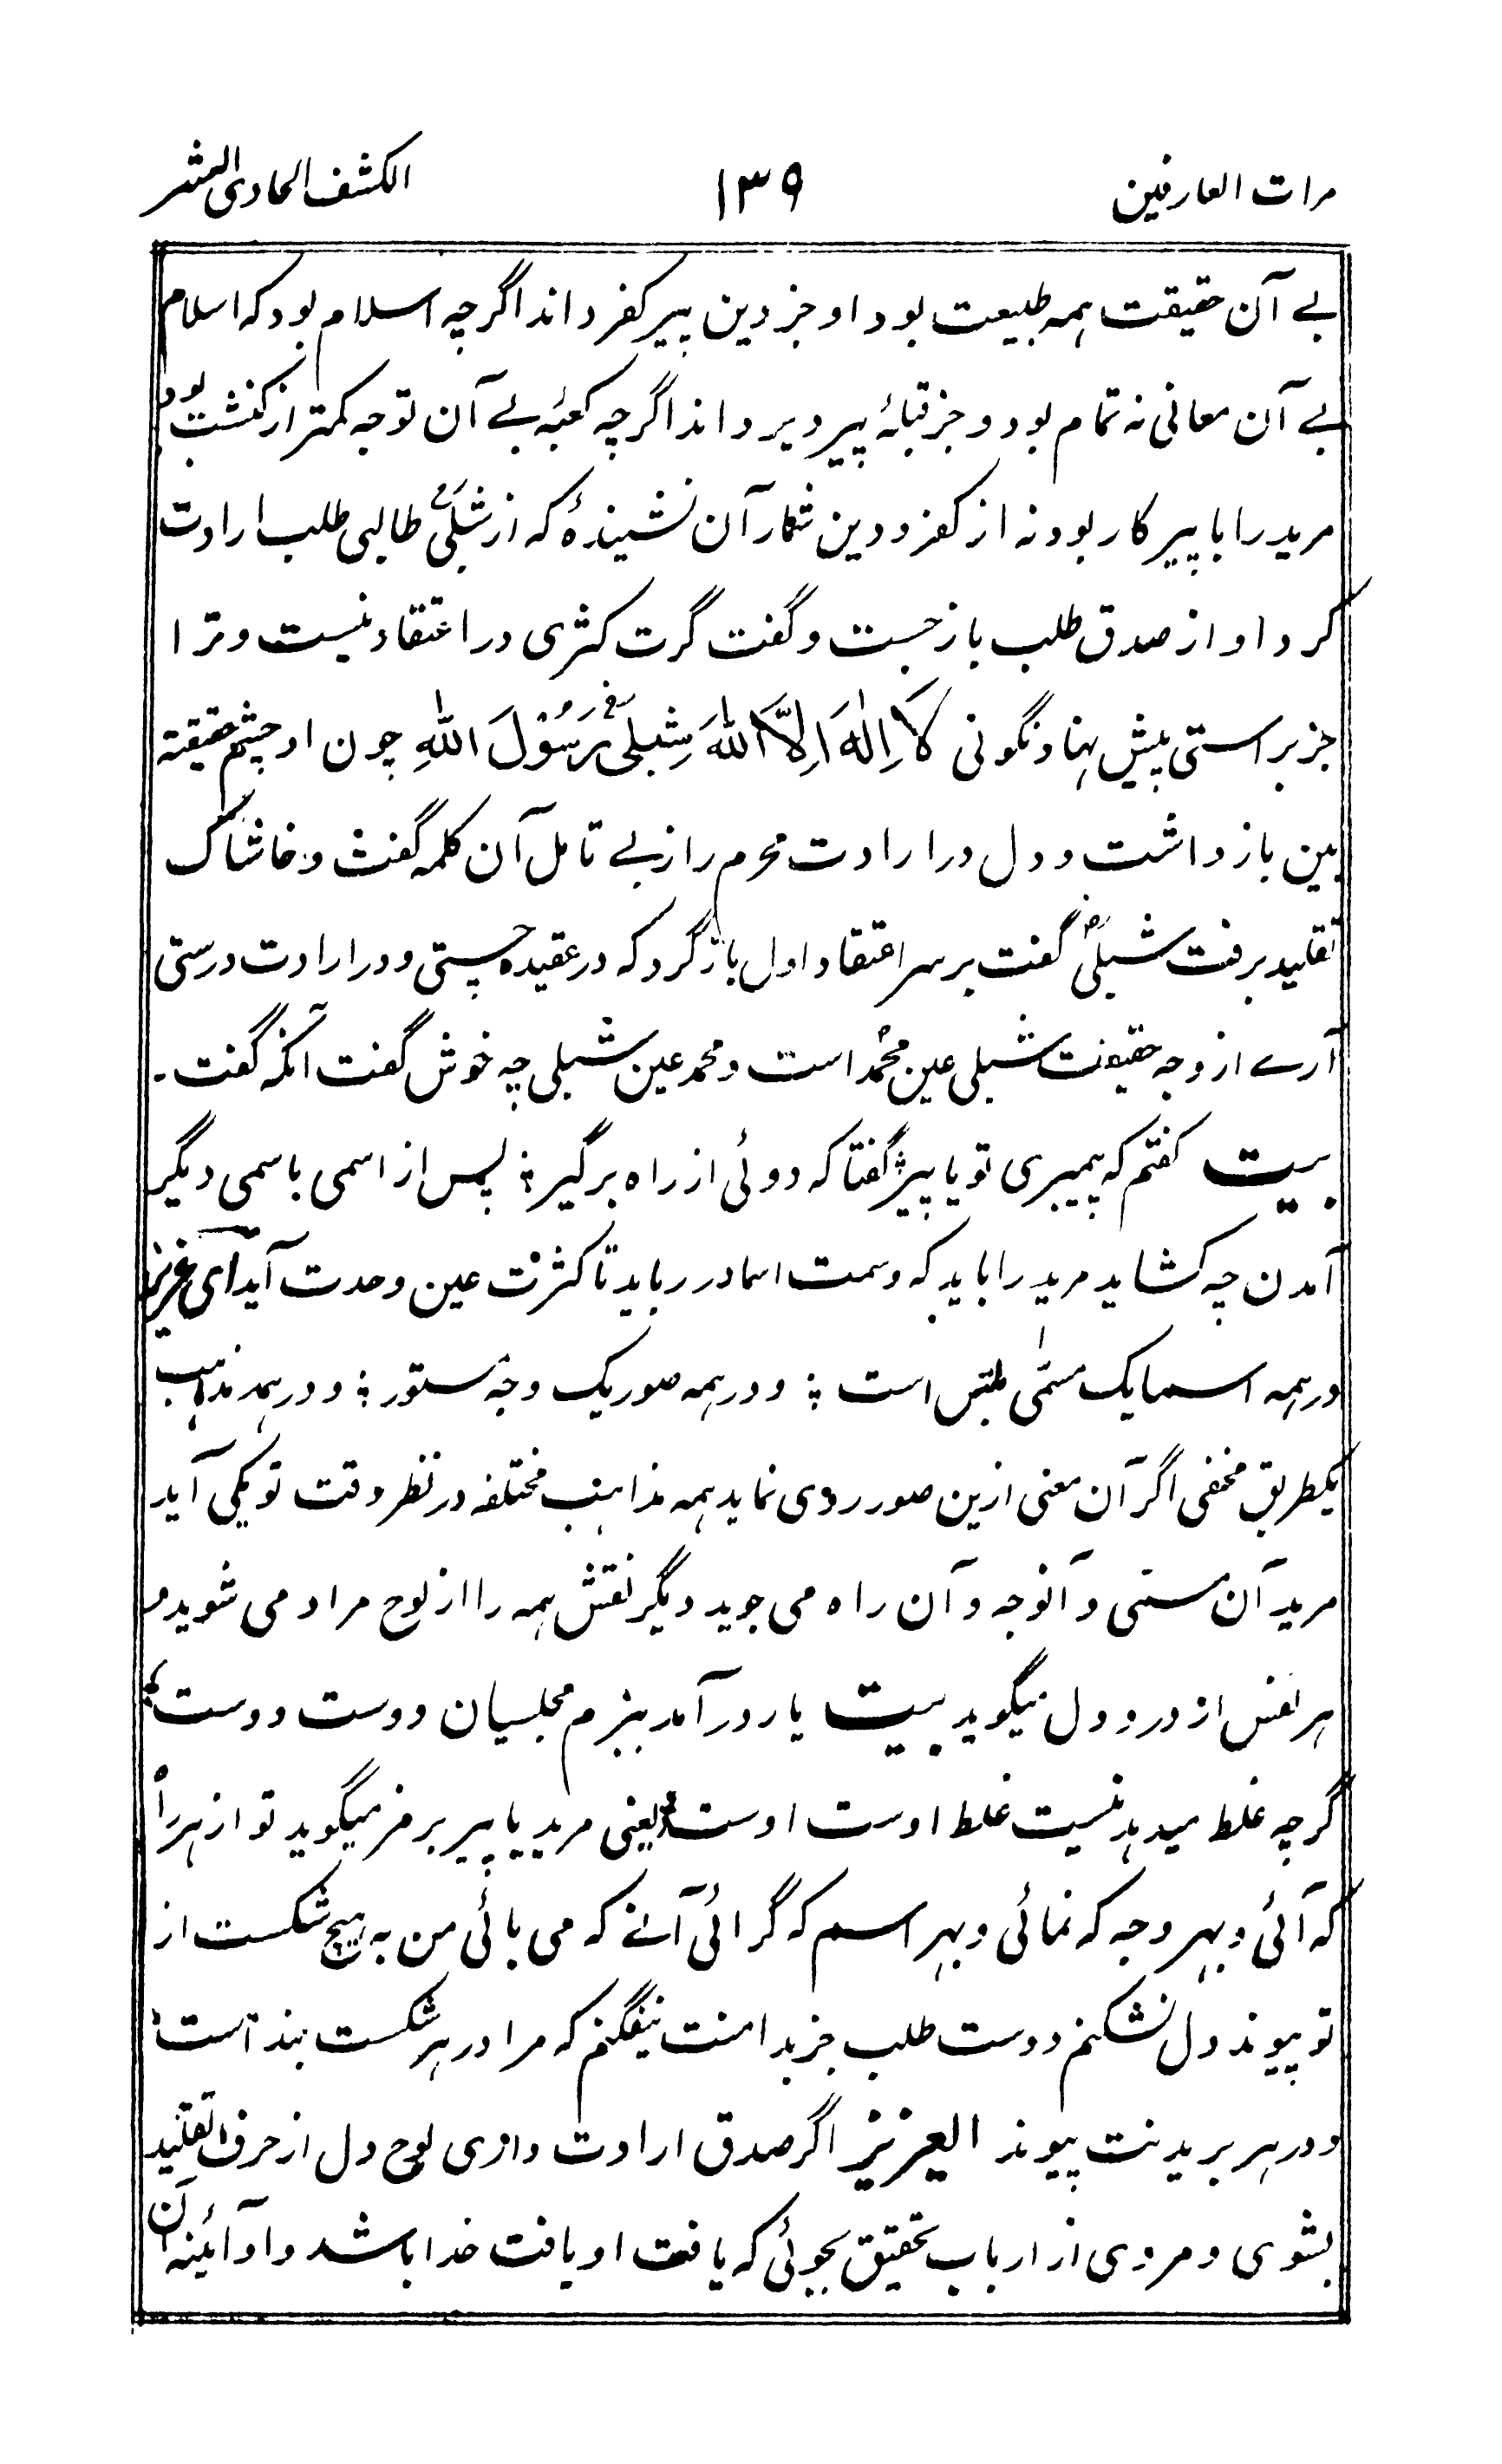 مرات العارفین ۱۳۹ الکشف الحادی العشر
بے آن حقیقت ہمہ طبیعت بود او جز دین پیر کفر داند اگرچہ اسلام بود کہ اسلام
بے آن معانی نہ تمام بود و جز قبلۂ پیر دیر داند اگرچہ کعبہ بے آن توجہ کمتر از کنشت بود
مرید را با پیر کار بود نہ از کفر و دین شمار آن نشنیدۂ کہ از شبلیؒ طالبی طلب ارادت
کرد او از صدق طلب باز جست و گفت گرت کثری در اعتقاد نیست و ترا
جز براستی پیش نہاد نگوئی لَا اِلٰهَ اِلَّا اللهَ شِبلیؒ رَسُوْلَ اللهِ چون او چشم حقیقة
بین باز داشت و دل در ارادت محرم راز بے تامل آن کلمہ گفت و خاشاک
تقلید برفت شبلیؒ گفت بر سر اعتقاد اول باز گرد کہ در عقیدہ چستی و در ارادت درستی
آرے از وجہ حقیقت شبلی عین محمدؐ است و محمد عین شبلی چہ خوش گفت آنکہ گفت۔
بیت گفتم کہ پیمبری تو یا پیر ؛ گفتا کہ دوئی از راہ برگیر ؛ پس از اسمی باسمی دیگر
آمدن چہ کشاید مرید را باید کہ وسمت اسما در رباید تا کثرت عین وحدت آید ای عزیز
در ہمہ اسما یک مسمّٰی ملتبس است ؛ و در ہمہ صور یک وجہ مستور ؛ و در ہمہ مذاہب
یکطریق مخفی اگر آن معنی ازین صور روی نماید ہمہ مذاہب مختلفہ در نظر وقت تو یکی آید
مرید آن مسمی و آنوجہ و آن راہ می جوید دیگر نقش ہمہ را از لوح مراد می شوید و
ہر نفس از درد دل میگوید بیت یار در آمد ببزم مجلسیان دوست دوست ؛
گرچہ غلط میدہد نیست غلط اوست اوست ؛ یعنی مرید با پیر برمز میگوید تو از ہر راہ
کہ آئی و بہر وجہ کہ نمائی و بہر اسم کہ گرائی آنے کہ می بائی من بہ ہیچ شکست از
تو پیوند دل نشکنم و دست طلب جز بدامنت نیفگنم کہ مرا در ہر شکست بند است
و در ہر بریدنت پیوند العزیز اگر صدق ارادت داری لوح دل از حرف تقلید
بشوی و مردی از ارباب تحقیق بجوئی کہ یافت او یافت خدا باشد و او آئینہ آن